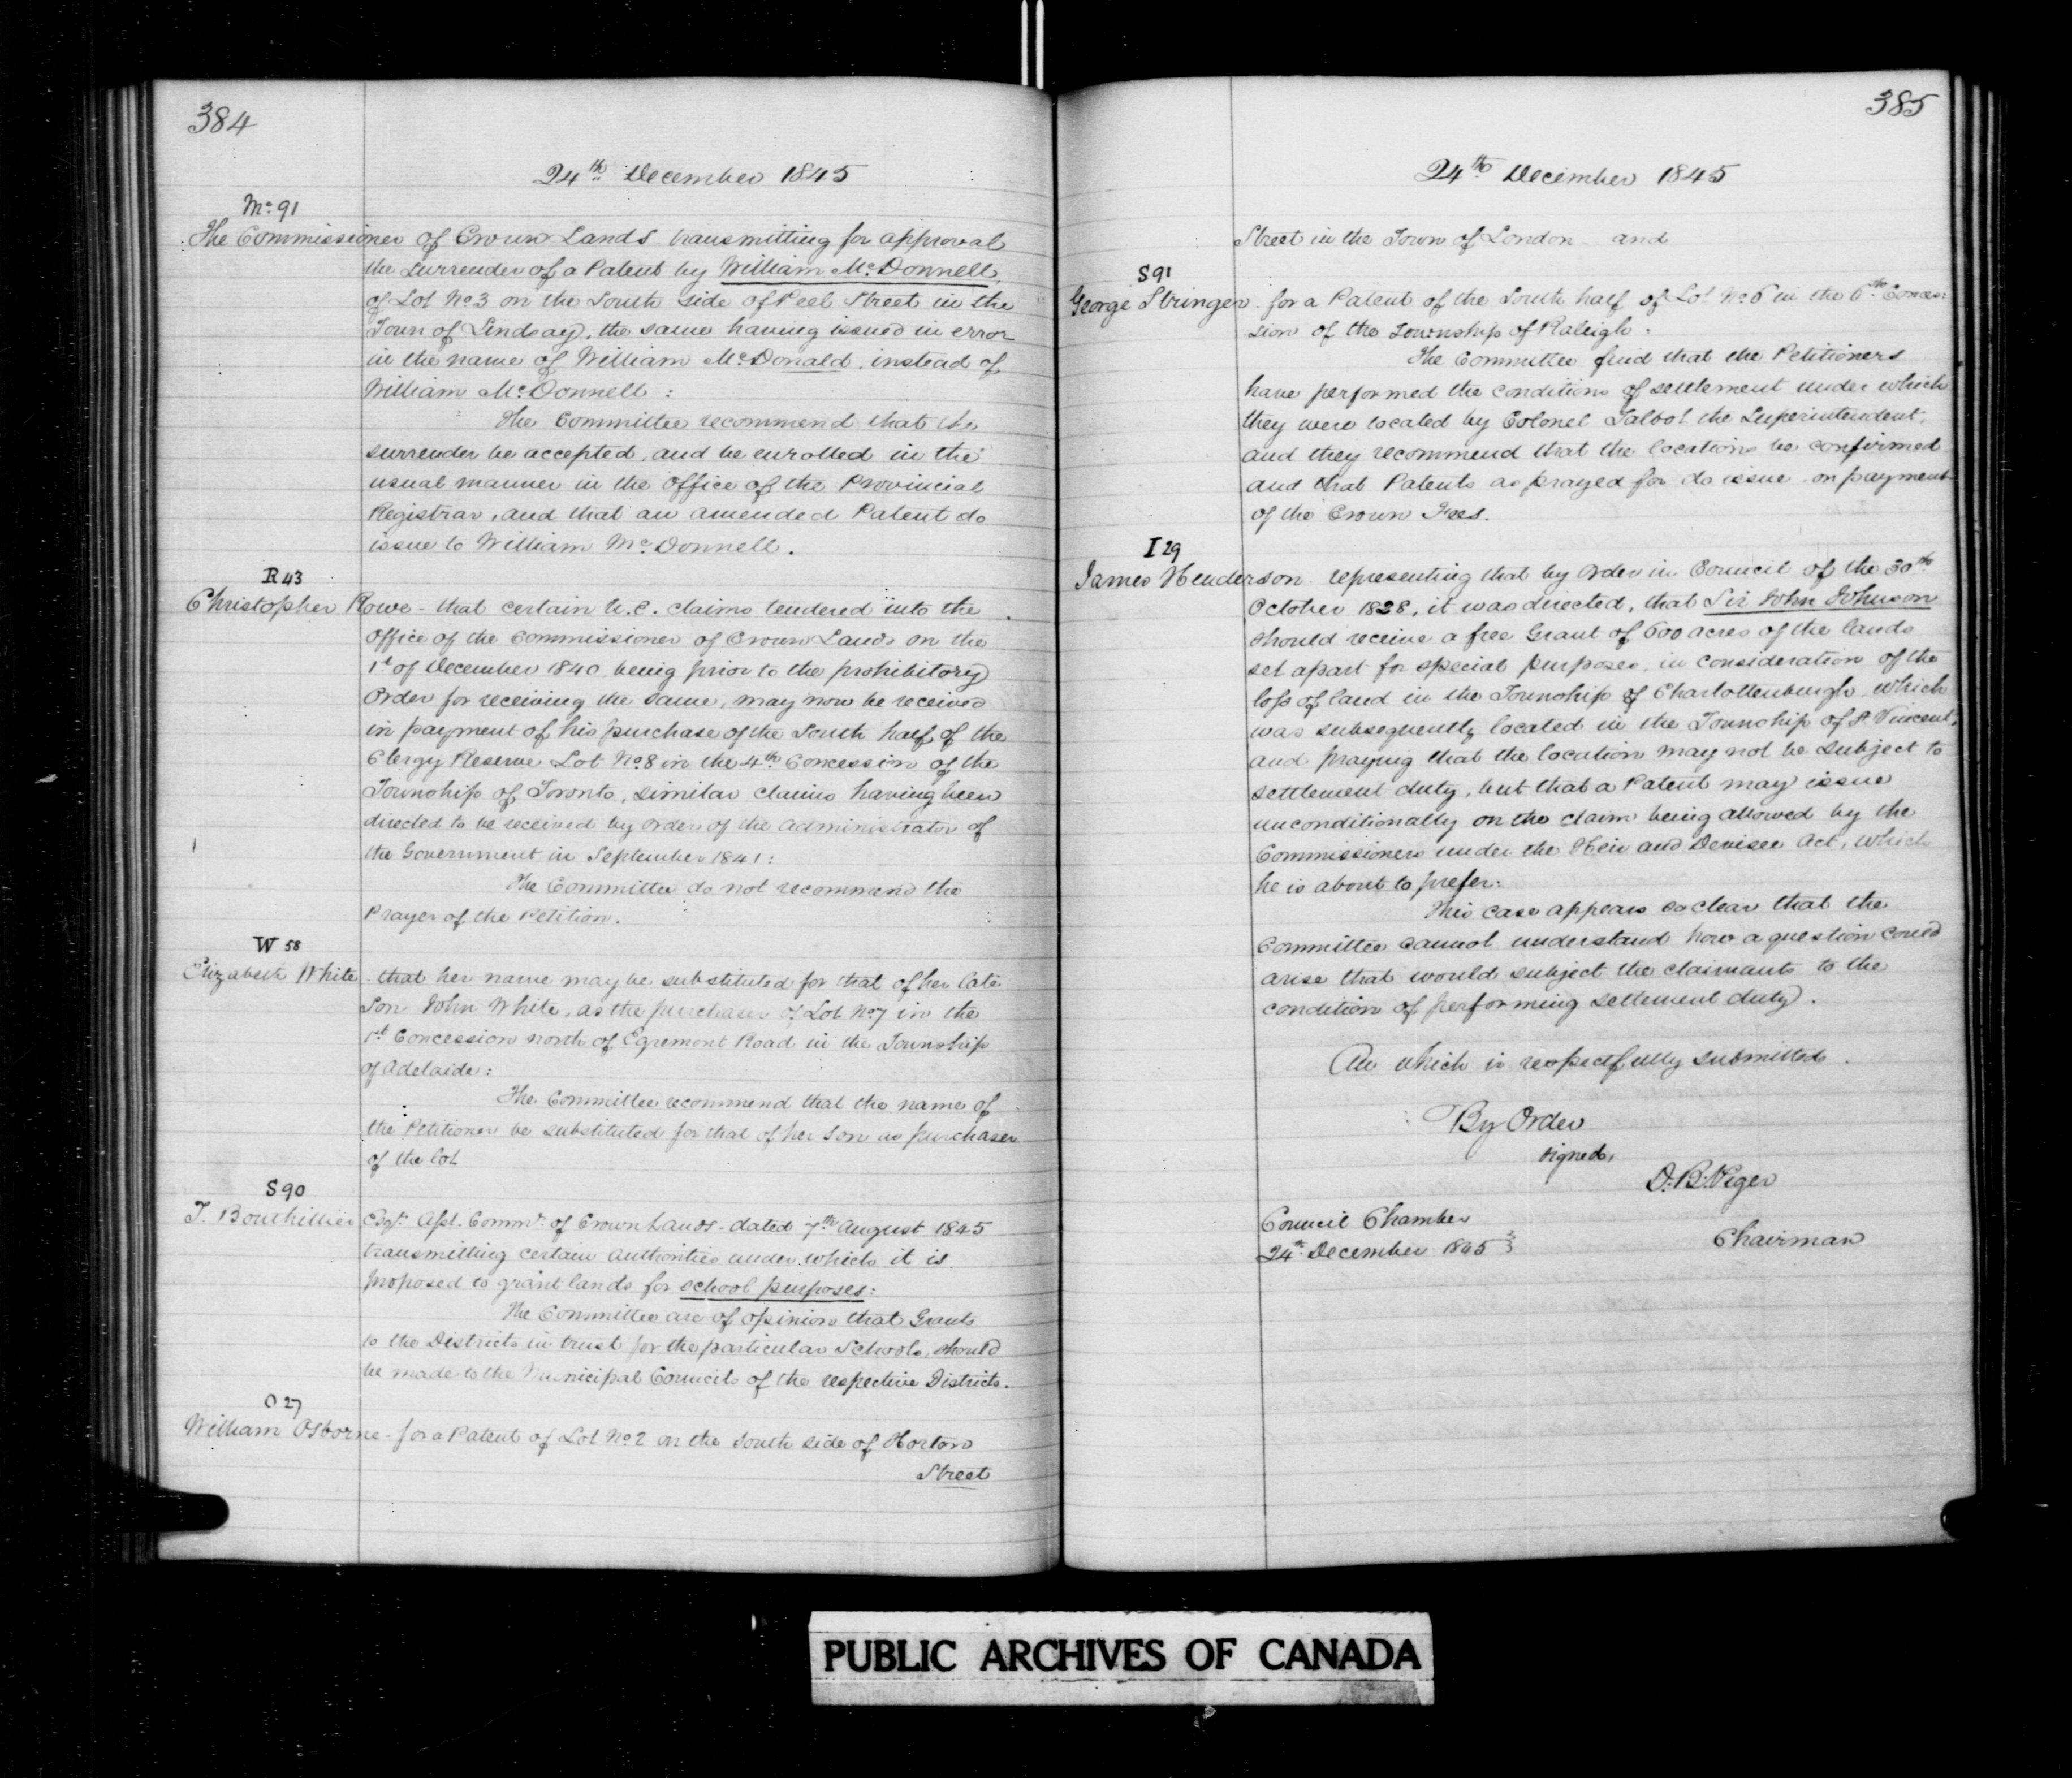 384
24th December 1845
Mc 91
The Commissioner of Crown Lands transmitting for approval
the surrender of a Patent by William McDonnell,
of Lot No 3 on the South side of Peel Street in the
Town of Lindsay, the same having issued in error
in the name of William McDonald, instead of
William McDonnell:
The Committee recommend that the
surrender be accepted, and be enrolled in the
usual manner in the Office of the Provincial
Registrar, and that an amended Patent do
issue to William McDonnell.
R 43
Christopher Rowe - that certain U.E. claims tendered into the
Office of the Commissioner of Crown Lands on the
1st of December 1840 being prior to the prohibitory
Order for receiving the same, may now be received
in payment of his purchase of the South half of the
Clergy Reserve Lot No 8 in the 4th Concession of the
Township of Toronto, similar claims having been
directed to be received by order of the Administrator of
the Government in September 1841:
The Committee do not recommend the
Prayer of the Petition.
W 58
Elizabeth White - that her name may be substituted for that of her late
Son John White, as the purchaser of Lot No 7 in the
1st Concession north of Egremont Road in the Township
of Adelaide:
The Committee recommend that the name of
the Petitioner be substituted for that of her Son as purchaser
of the lot
S 90
T. Bouthillier Esqr. Asst. Commr. of Crown Lands - dated 7th August 1845
transmitting certain Authorities under which it is
proposed to grant lands for school purposes:
The Committee are of opinion that Grants
to the Districts in trust for the particular Schools, should
be made to the Municipal Councils of the respective Districts.
O 27
William Osborne - for a Patent of Lot No 2 on the South side of Horton
Street
385
24th December 1845
Street in the Town of London and
S 91
George Stringer - for a Patent of the South half of Lot No 6 in the 6th Conces
sion of the Township of Raleigh:
The Committee find that the Petitioners
have performed the conditions of settlement under which
they were located by Colonel Talbot the Superintendent,
and they recommend that the locations be confirmed
and that Patents as prayed for do issue on payment
of the Crown Fees.
I 29
James Henderson representing that by Order in Council of the 30th
October 1828, it was directed, that Sir John Johnson
should receive a free Grant of 600 acres of the lands
set apart for special purposes, in consideration of the
loss of land in the Township of Charlottenburgh which
was subsequently located in the Township of St Vincent,
and praying that the location may not be subject to
settlement duty, but that a Patent may issue
unconditionally on the claim being allowed by the
Commissioners under the Heir and Devisee Act, which
he is about to prefer:
This case appears so clear that the
Committee cannot understand how a question could
arise that would subject the claimants to the
condition of performing settlement duty.
All which is respectfully submitted.
By Order
signed,
D. B. Viger
Council Chamber
24th December 1845
Chairman
PUBLIC ARCHIVES OF CANADA